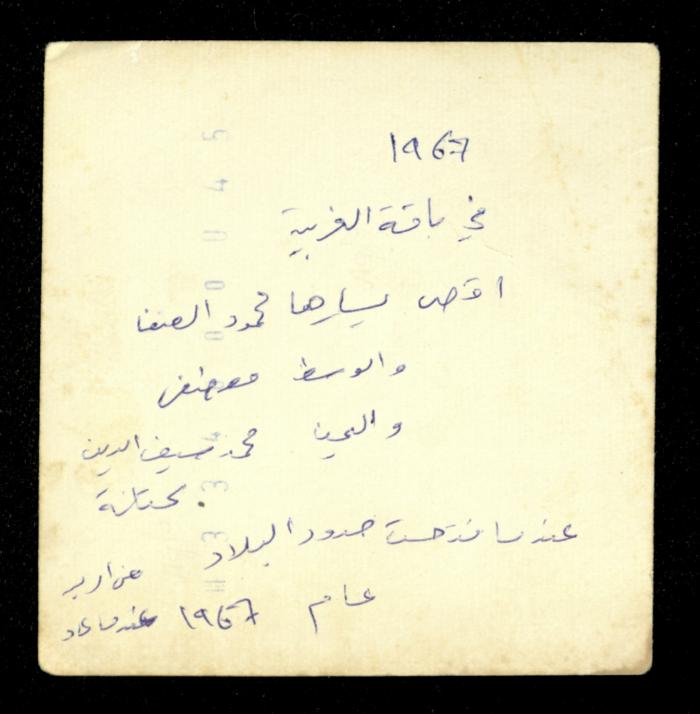 1967
في باقة الغربية
اقصى يسارها محمود الصفا
والوسط مصطفى
واليمين محمد سيف الدين
عندما فتحت حدود البلاد
من اربد
عام 1967 عندما عاد